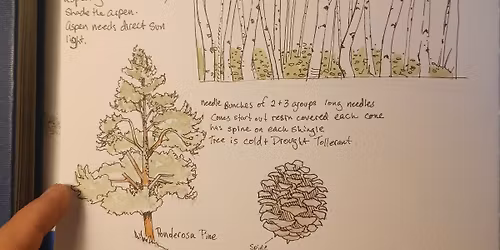 Shade the aspen.
Aspen needs direct sun
light.
needle Bunches of 2+3 groups long needles
Cones start out resin covered each cone
has spine on each shingle
Tree is cold + Drought Tollerant
Ponderosa Pine